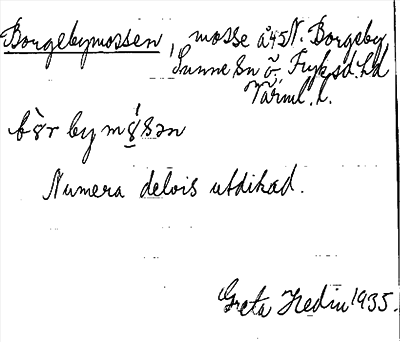 Borgebymossen, mosse å 45 N. Borgeby,
Sunne sn ö. Fryksd. hd
Värml. l.
bȯ̀r by mȯ́s̄ən
Numera delvis utdikad.
Greta Hedin 1935.